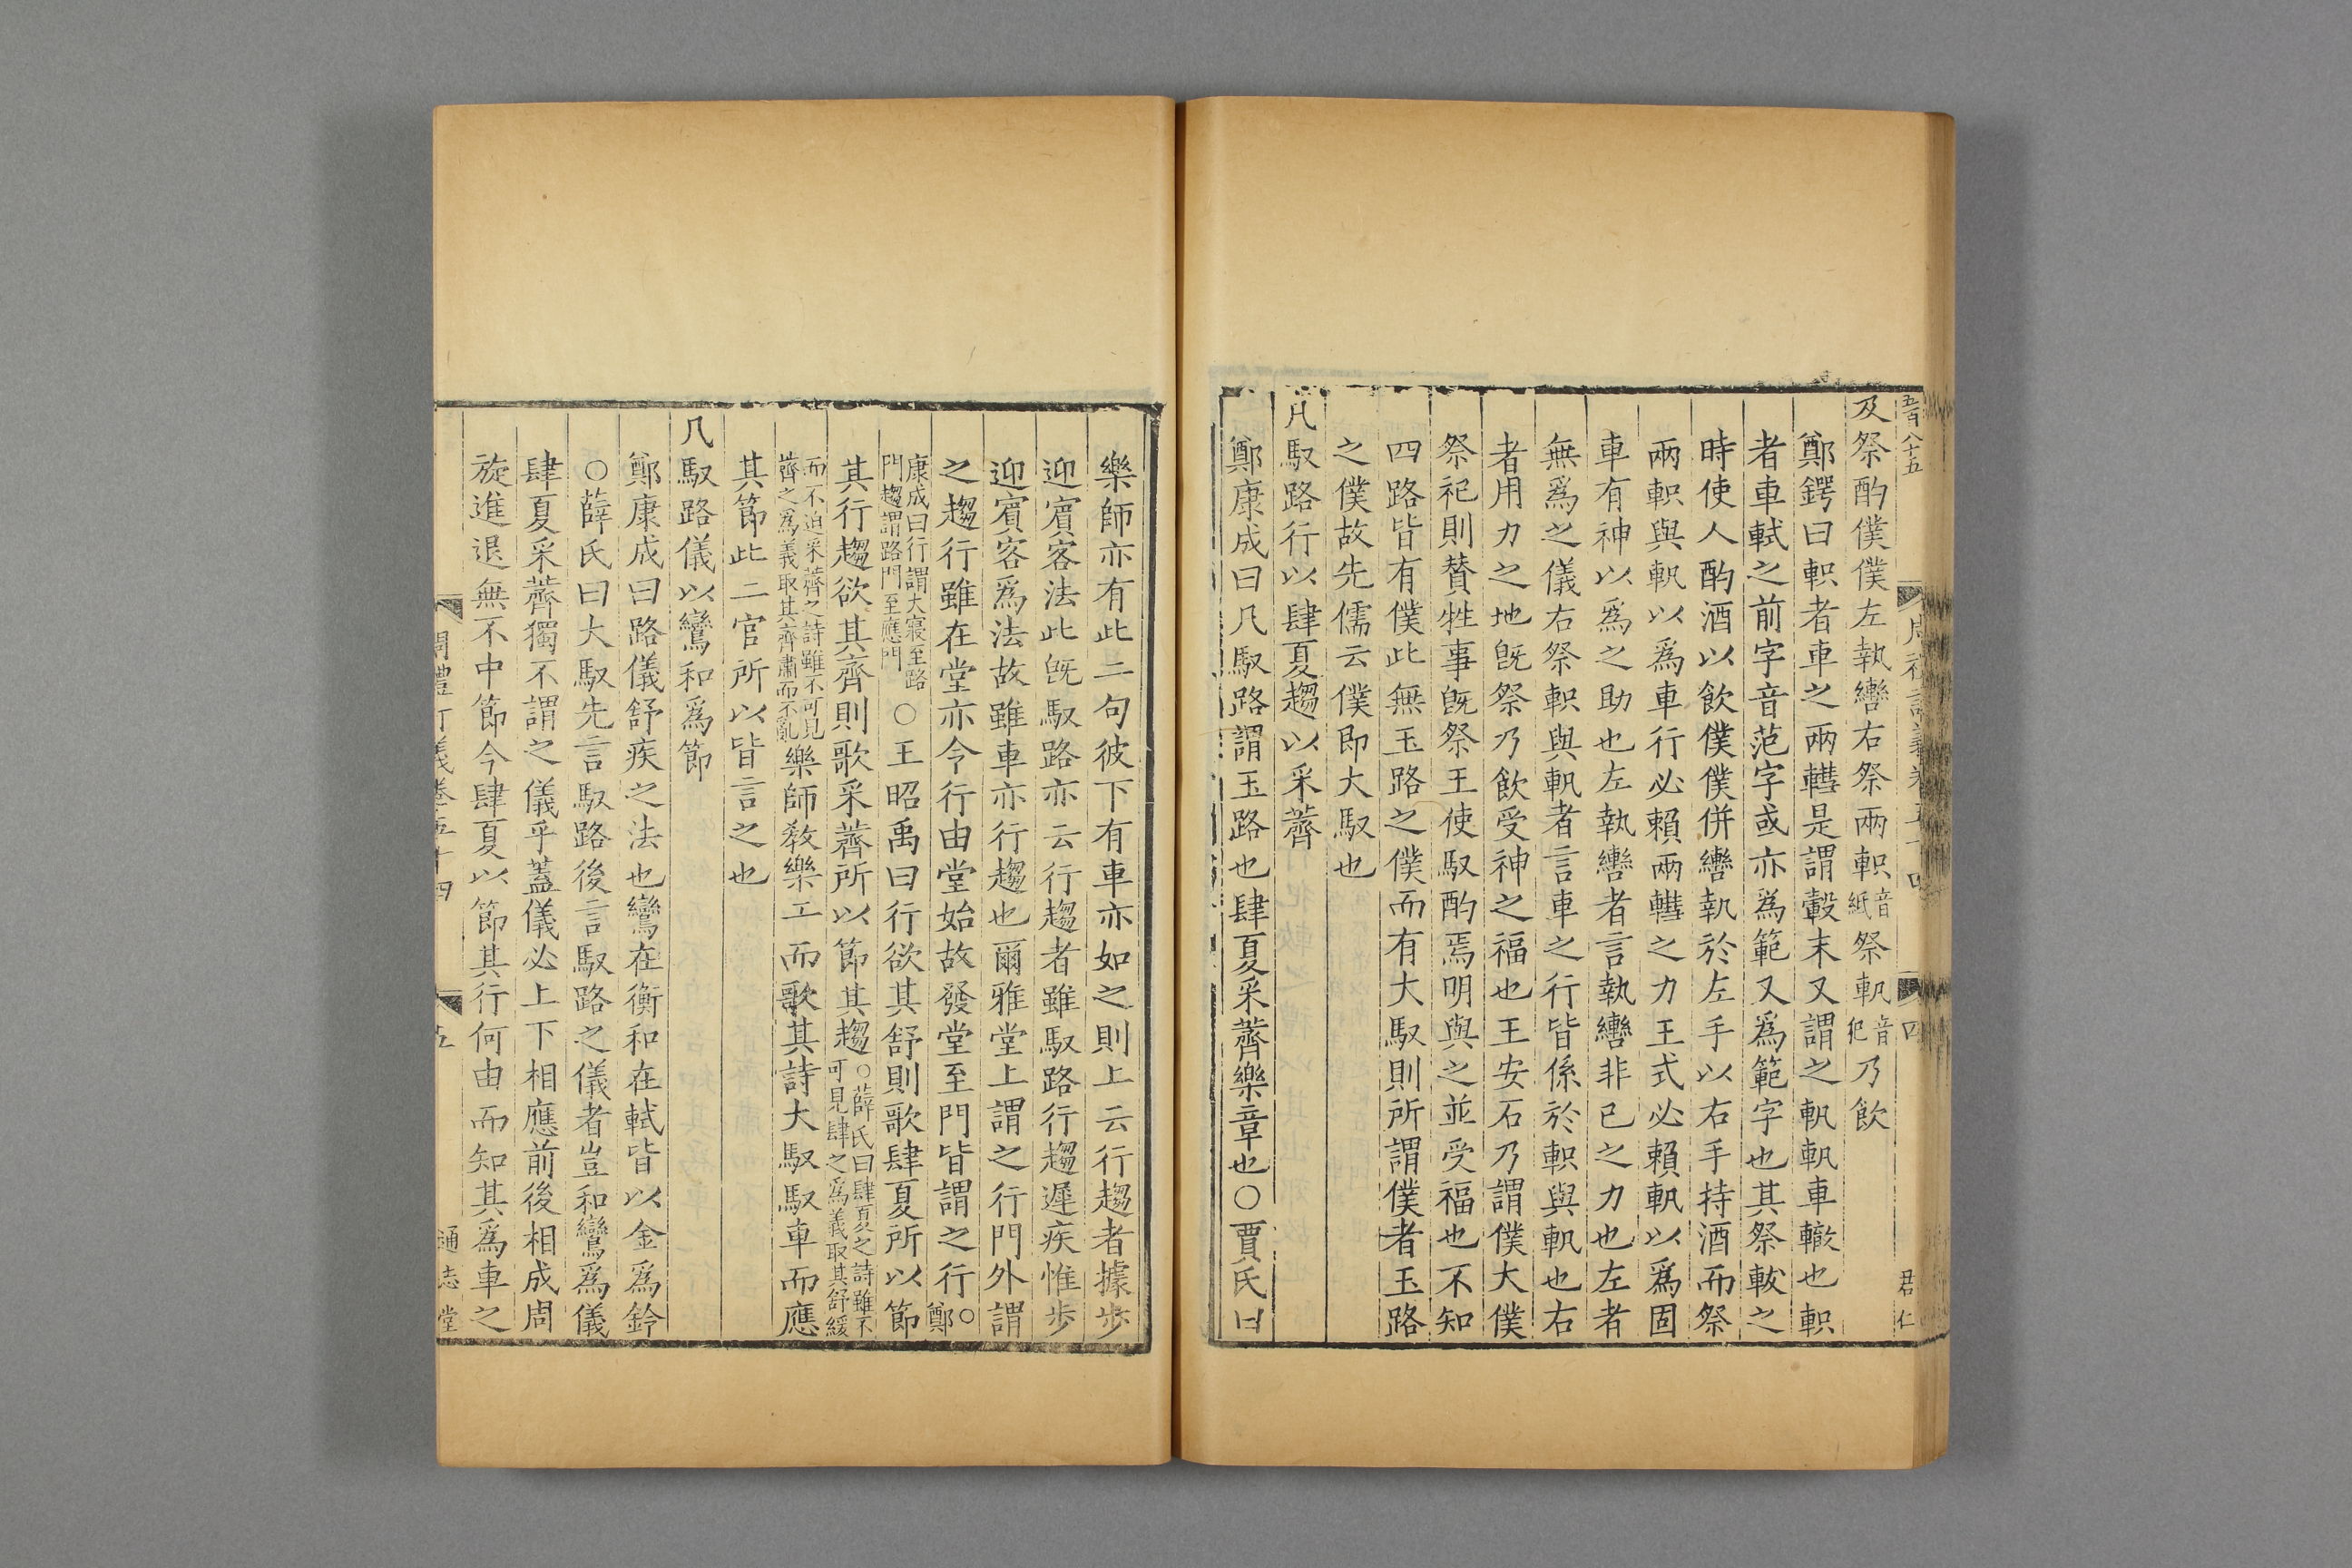 五百八十五
四
君仁
及祭酌僕僕左執轡右祭兩軹音紙祭軓音犯乃飲
鄭鍔曰軹者車之兩轊是謂轂末又謂之軓軓車轍也軹
者車軾之前字音范字或亦為範又為範字也其祭軷之
時使人酌酒以飲僕僕併轡執於左手以右手持酒而祭
兩軹與軓以為車行必賴兩轊之力王式必賴軓以為固
車有神以為之助也左執轡者言執轡非已之力也左者
無為之儀右祭軹與軓者言車之行皆係於軹與軓也右
者用力之地旣祭乃飲受神之福也王安石乃謂僕大僕
祭祀則贊牲事旣祭王使馭酌焉明與之並受福也不知
四路皆有僕此無玉路之僕而有大馭則所謂僕者玉路
之僕故先儒云僕即大馭也
凡馭路行以肆夏趨以采薺
鄭康成曰凡馭路謂玉路也肆夏采薺樂章也○賈氏曰
樂師亦有此二句彼下有車亦如之則上云行趨者據步
迎賓客法此旣馭路亦云行趨者雖馭路行趨遲疾惟步
迎賓客為法故雖車亦行趨也爾雅堂上謂之行門外謂
之趨行雖在堂亦令行由堂始故發堂至門皆謂之行○鄭
康成曰行謂大寢至路
門趨謂路門至應門○王昭禹曰行欲其舒則歌肆夏所以節
其行趨欲其齊則歌采薺所以節其趨○薛氏曰肆夏之詩雖不
可見肆之為義取其舒緩
而不迫采薺之詩雖不可見
薺之為義取其齊肅而不亂樂師教樂工而歌其詩大馭馭車而應
其節此二官所以皆言之也
凡馭路儀以鸞和為節
鄭康成曰路儀舒疾之法也鸞在衡和在軾皆以金為鈴
○薛氏曰大馭先言馭路後言馭路之儀者豈和鸞為儀
肆夏采薺獨不謂之儀乎蓋儀必上下相應前後相成周
旋進退無不中節今肆夏以節其行何由而知其為車之
周禮訂義卷五十四
五
通志堂